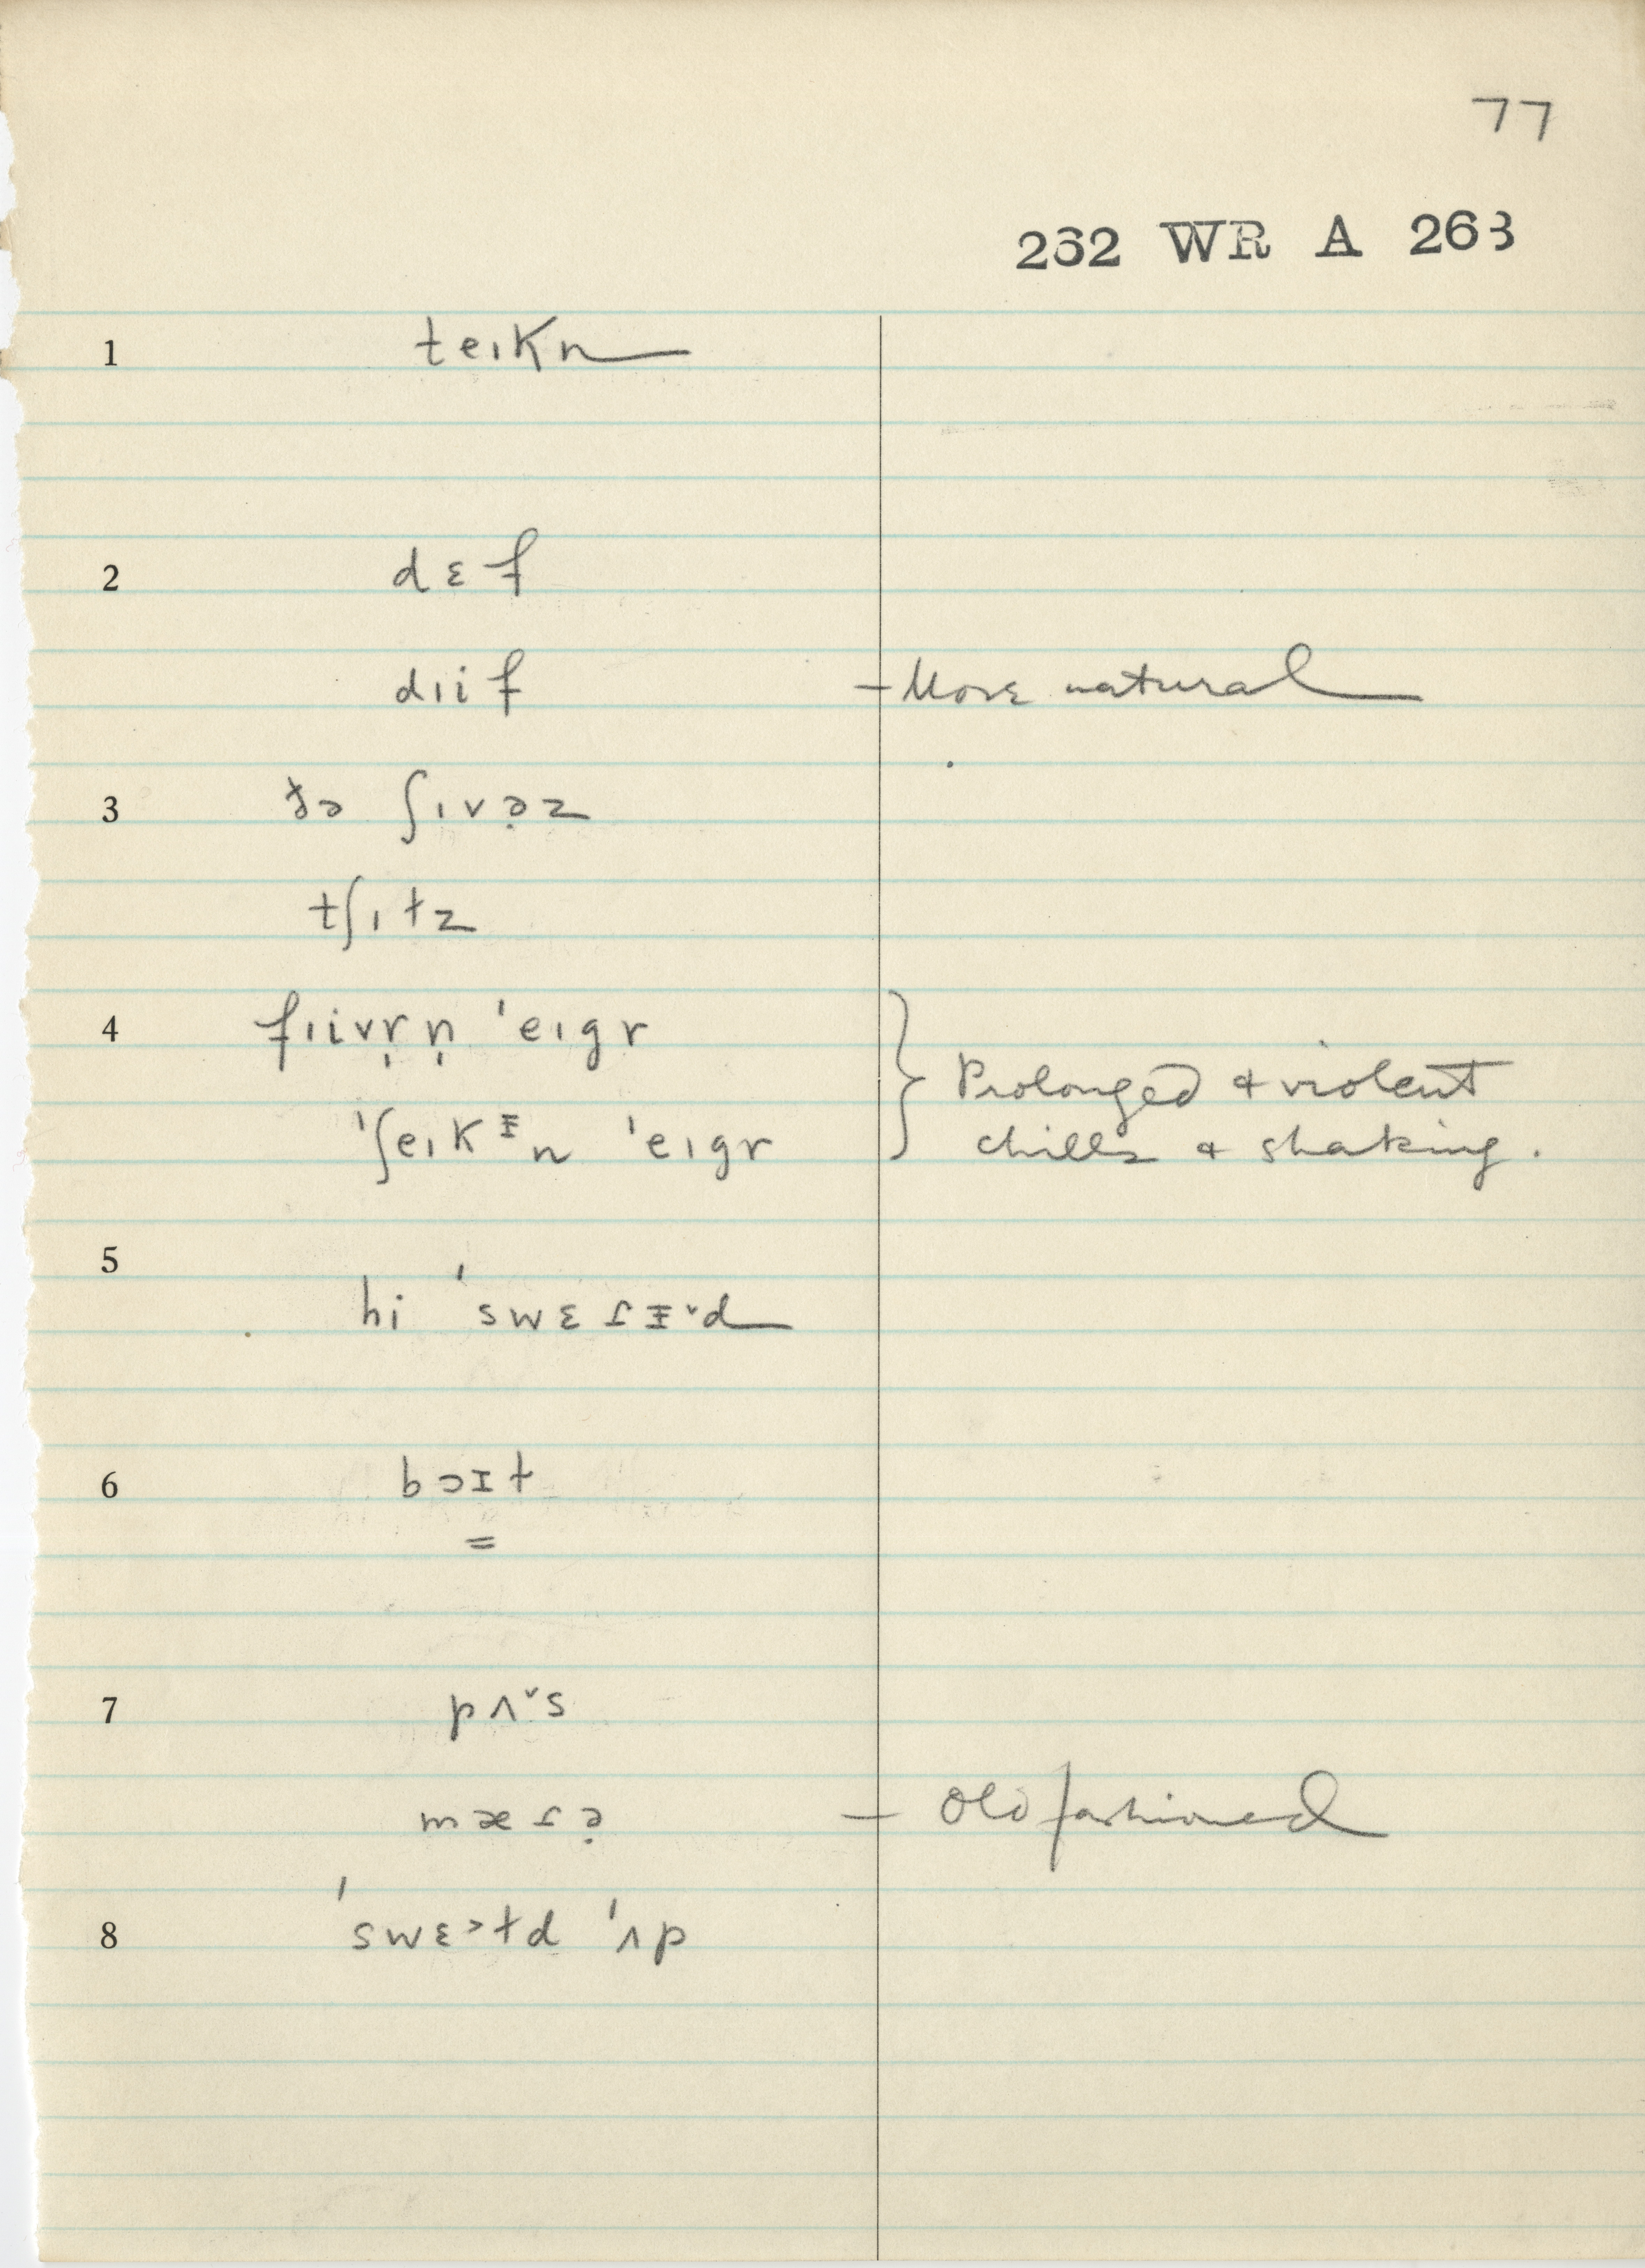 77
262 WR A 263
1 teɪkn
2 dɛf
dɪif – More natural
3 ðə ʃɪvə̣z
tʃɪłz
4 fɪivṛ ṇ 'eɪgr } Prolonged & violent
'ʃeɪkᵻn 'eɪgr chills & shaking.
5 hi 'swɛɾᵻ˅d
6 bɔɪł
=
7 pʌ˅s
mæɾə̣ – Old fashioned
8 'swɛ˃łd 'ʌp